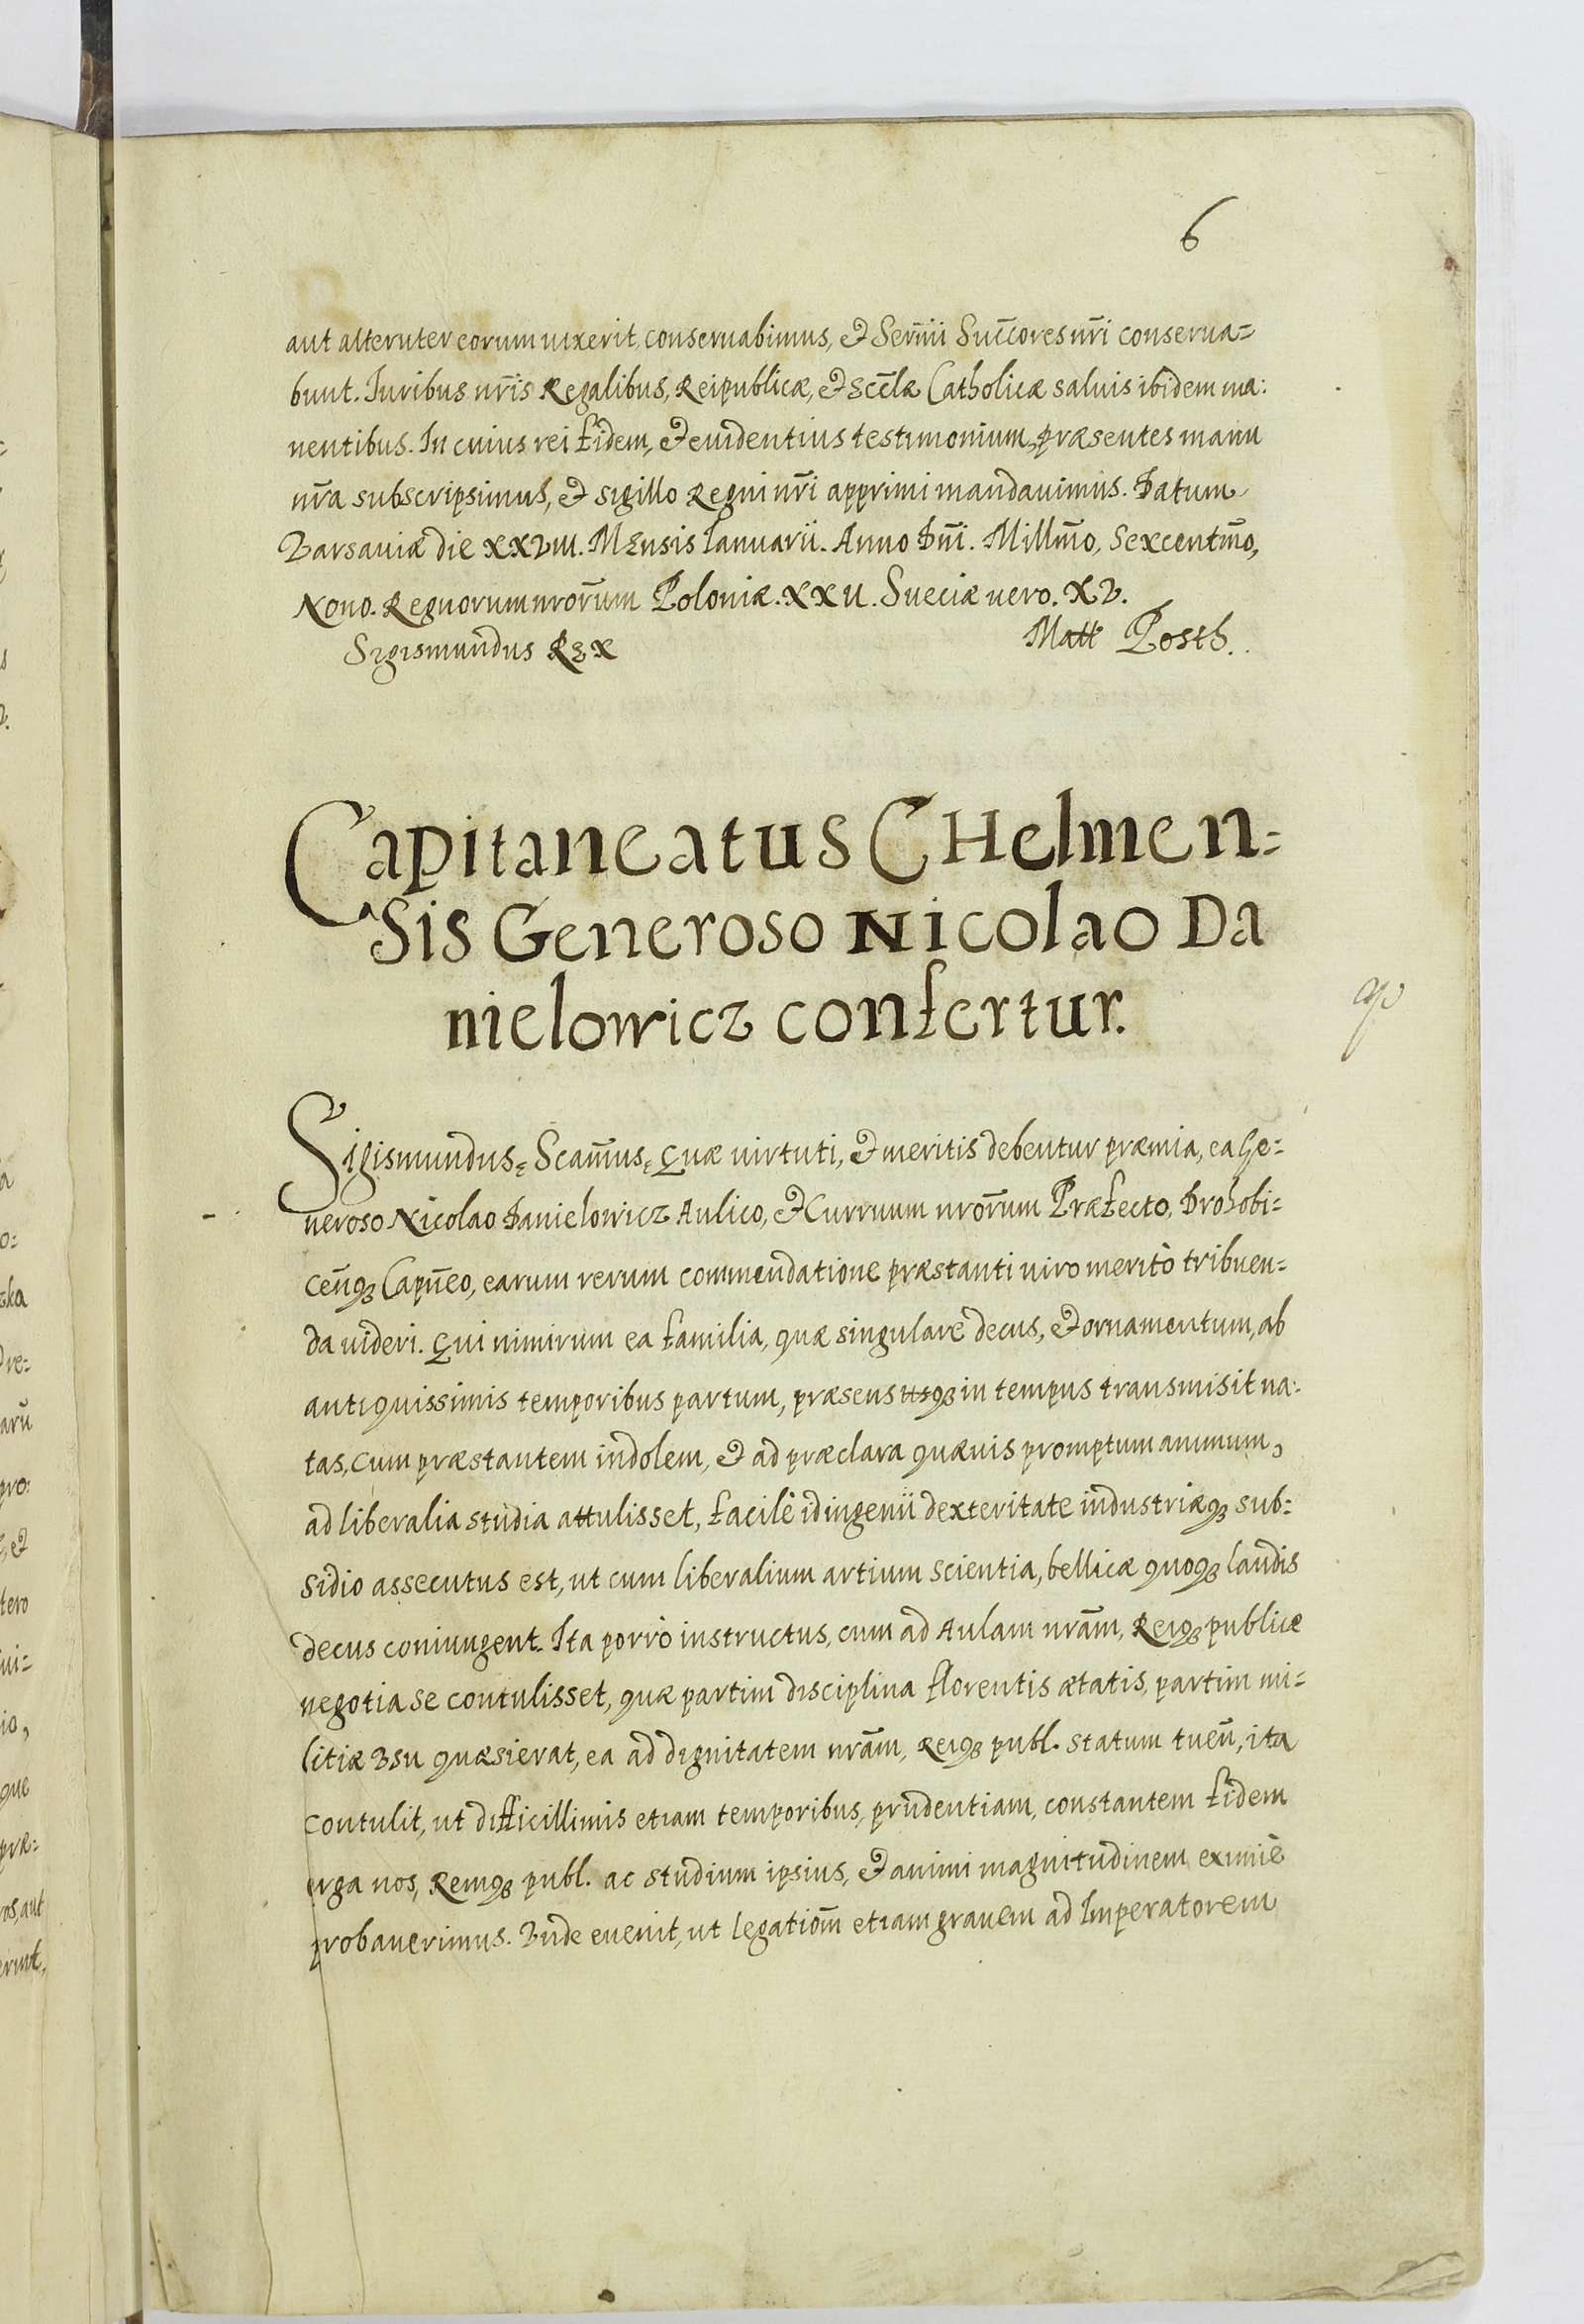 6
aut alteruter eorum uixerit, conseruabimus, et Serm̄ii Succ̄ores nr̄i conserua=
bunt. Iuribus nr̄is Regalibus, Reipublicæ, et Eccl̄æ Catholicæ saluis ibidem ma:
nentibus. In cuius rei fidem, et euidentius testimonium, præsentes manu
nr̄a subscripsimus, et sigillo Regni nr̄i apprimi mandauimus. Datum
Varsauiæ die XXVIII. Mensis Ianuarii. Anno Dn̄i. Millm̄o, Sexcentm̄o,
Nono. Regnorum nror̄um Poloniæ. XXII. Sueciæ uero. XV.
Sigismundus Rex Matt Posth.
Capitaneatus CHelmen=
sis Generoso Nicolao Da
nielowicz confertur.
Sigismundus etc Scam̄us etc Quæ uirtuti, et meritis debentur præmia, ea Ge=
neroso Nicolao Danielowicz Aulico, et Curruum nror̄um Præfecto, Drohobi=
cen̄q3 Capn̄eo, earum rerum commendatione præstanti uiro meritò tribuen=
da uideri. Qui nimirum ea familia, quæ singulare decus, et ornamentum, ab
antiquissimis temporibus partum, præsens usq3 in tempus transmisit na:
tas, cum præstantem indolem, et ad præclara quæuis promptum animum,
ad liberalia studia attulisset, facilè id ingenii dexteritate industriæq3 sub=
sidio assecutus est, ut cum liberalium artium scientia, bellicæ quoq3 laudis
decus coniungent. Ita porrò instructus, cum ad Aulam nrām, Reiq3 publice
negotia se contulisset, quæ partim disciplina florentis ætatis, partim mi=
litiæ Vsu quæsierat, ea ad dignitatem nrām, Reiq3 publ. statum tuen̄, ita
contulit, ut difficillimis etiam temporibus, prudentiam, constantem fidem
erga nos, Remq3 publ. ac studium ipsius, et animi magnitudinem eximiè
probauerimus. Vnde euenit, ut legatiōm etiam grauem ad Imperatorem